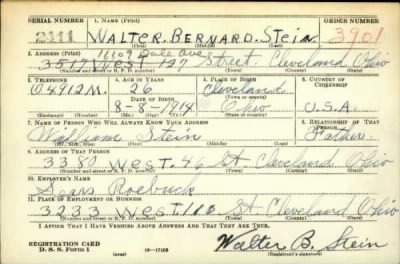 SERIAL NUMBER 1. NAME (Print) ORDER NUMBER
2111 WALTER. BERNARD. Stein. 3901
(First) (Middle) (Last)
11109 Dale Ave
2. ADDRESS (Print)
3517 West 127 Street. Cleveland Ohio
(Number and street or R. F. D. number) (Town) (County) (State)
3. TELEPHONE 4. AGE IN YEARS 5. PLACE OF BIRTH 6. COUNTRY OF CITIZENSHIP
O4912M. 26 Cleveland
DATE OF BIRTH
8-8-1914 Ohio U.S.A.
(Exchange) (No.) (Mo.) (Day) (Yr.) (State or country)
7. NAME OF PERSON WHO WILL ALWAYS KNOW YOUR ADDRESS 8. RELATIONSHIP OF THAT PERSON
William Stein Father.
(Mr., Mrs., Miss) (First) (Middle) (Last)
9. ADDRESS OF THAT PERSON
3380 West. 46 St. Cleveland Ohio
(Number and street or R. F. D. number) (Town) (County) (State)
10. EMPLOYER'S NAME
Sears Roebuck
11. PLACE OF EMPLOYMENT OR BUSINESS
3233 West. 110 St. Cleveland Ohio
(Number and street or R. F. D. number) (Town) (County) (State)
I AFFIRM THAT I HAVE VERIFIED ABOVE ANSWERS AND THAT THEY ARE TRUE.
REGISTRATION CARD
D. S. S. Form 1 (over) Walter B. Stein
(Registrant's signature)